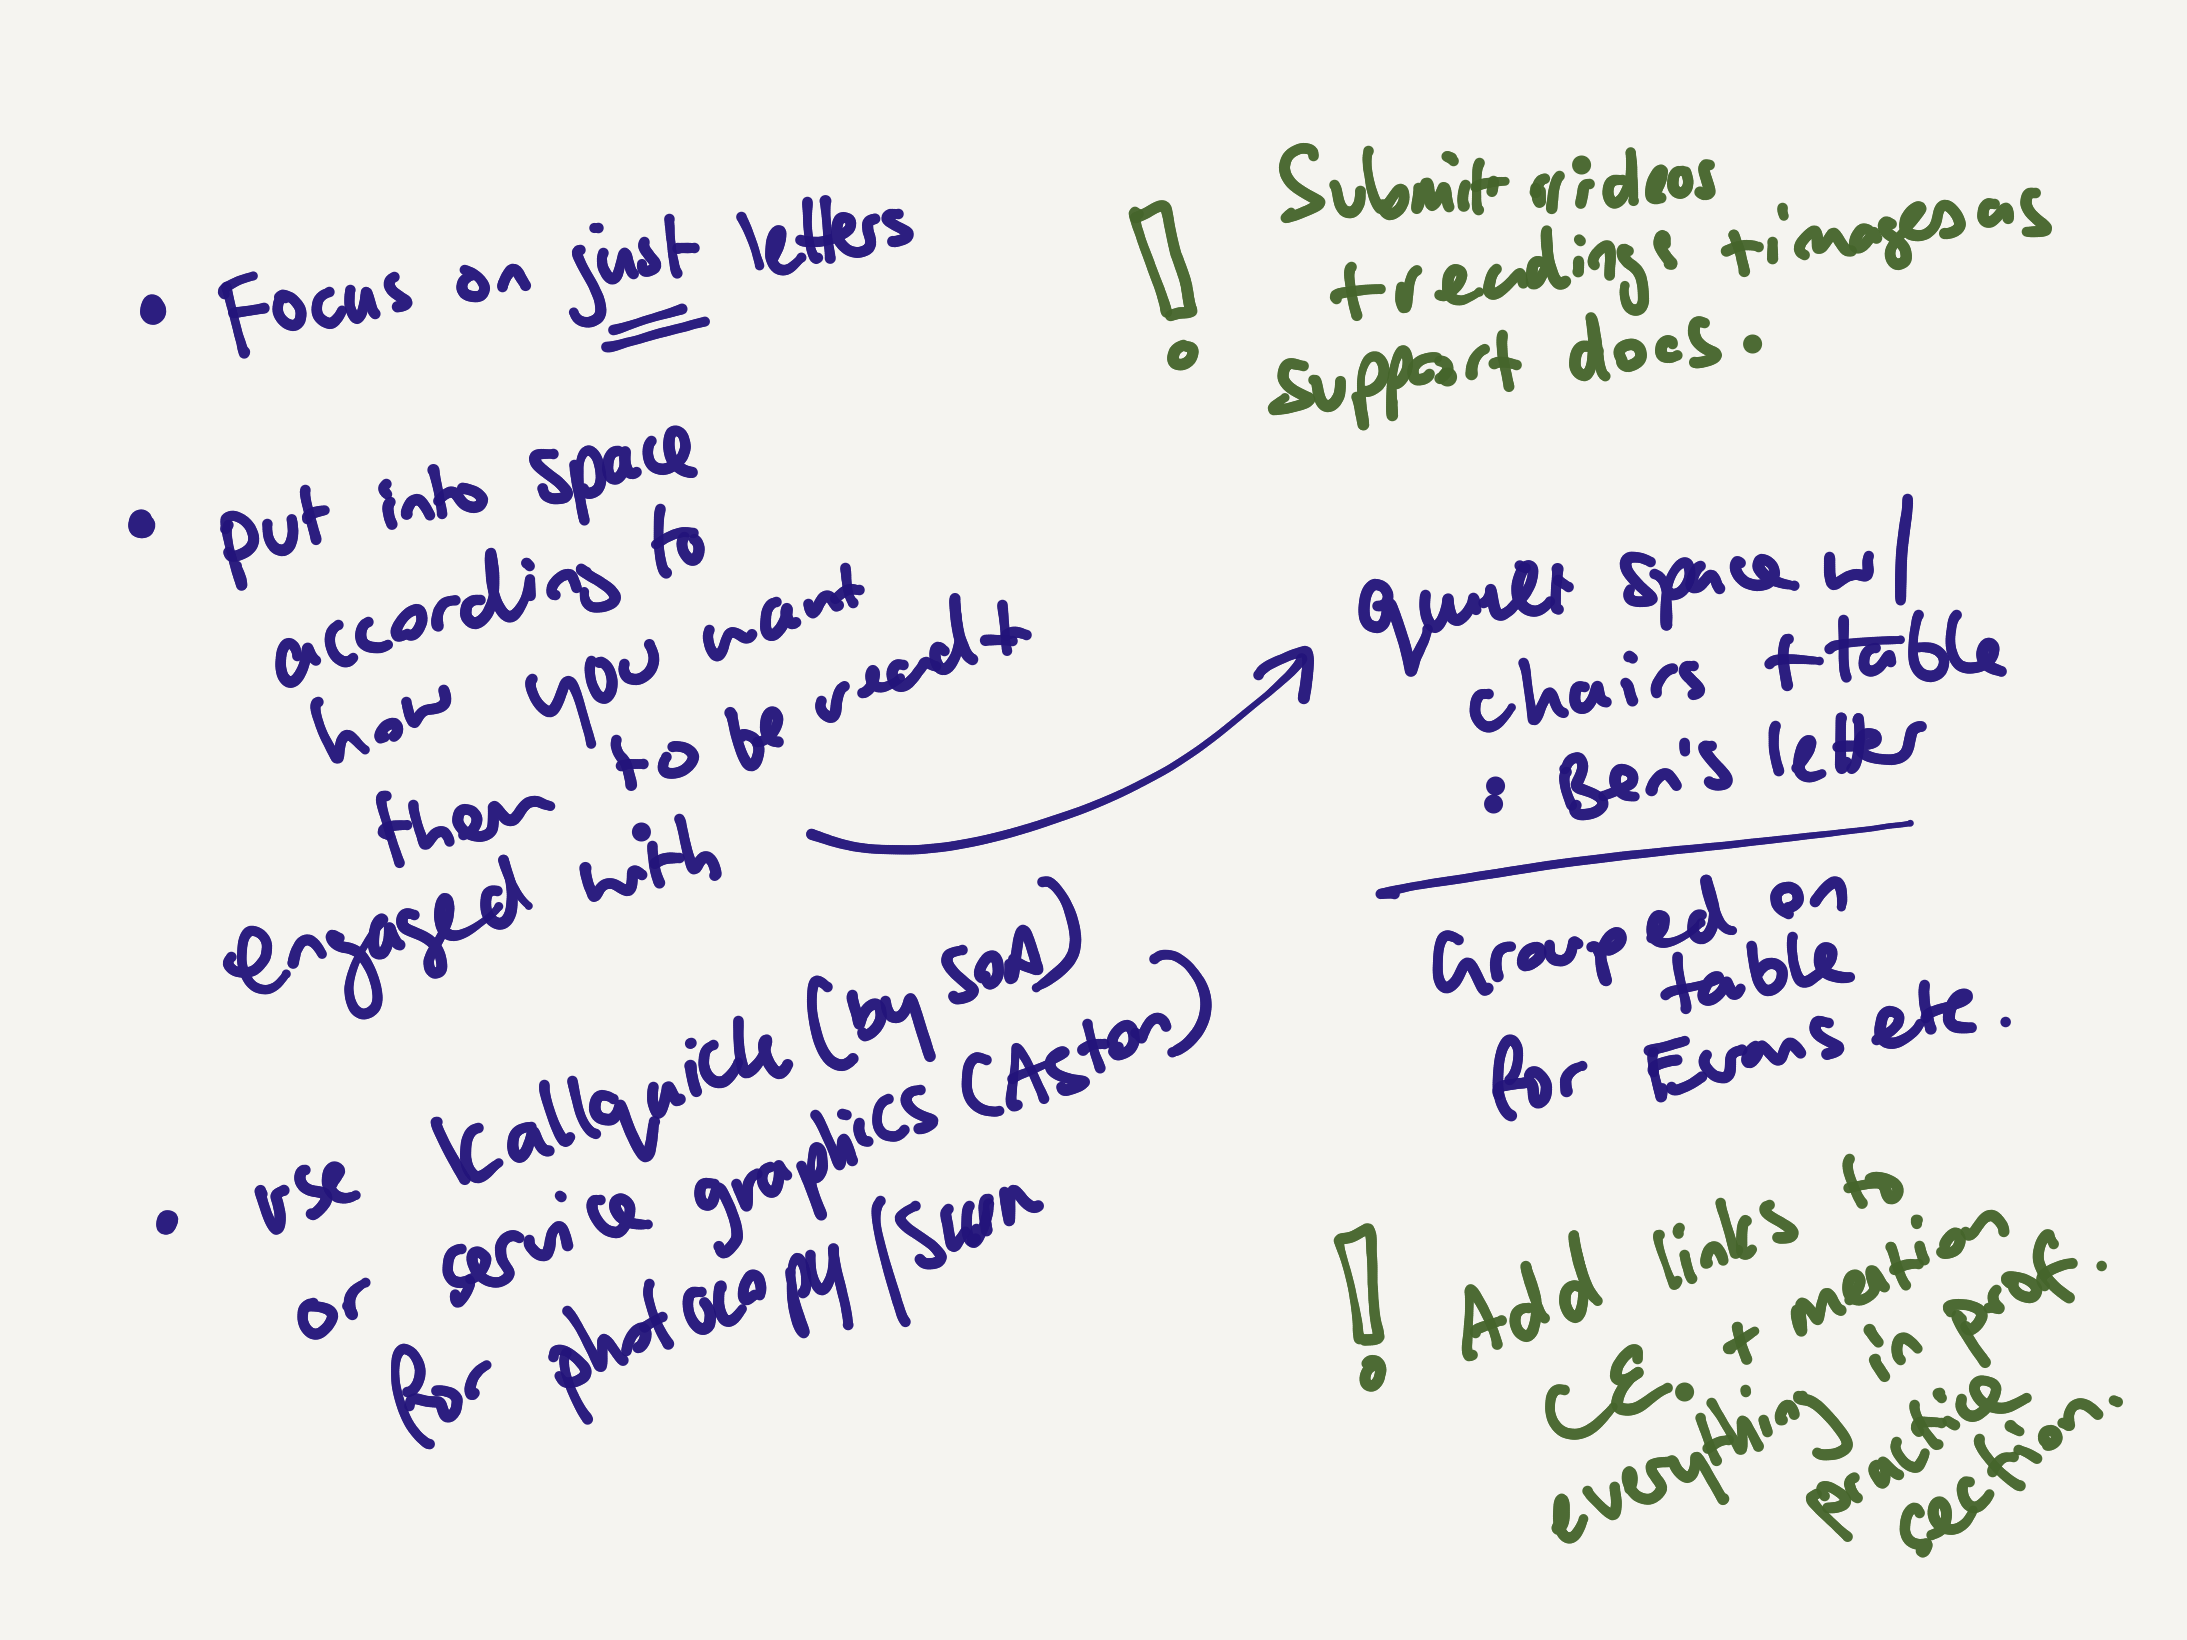 • Focus on just letters
• put into space
according to
how you want
them to be read +
engaged with
• use Kallquick (by sas)
or service graphics (Aston)
for photocopy / scan
! Submit videos
+ readings + images as
support docs.
quiet space w/
chairs + table
: Ben's letter
Grouped on
table
for Evans etc.
! Add links to
CE. + mention
everything in prof.
practice
section.